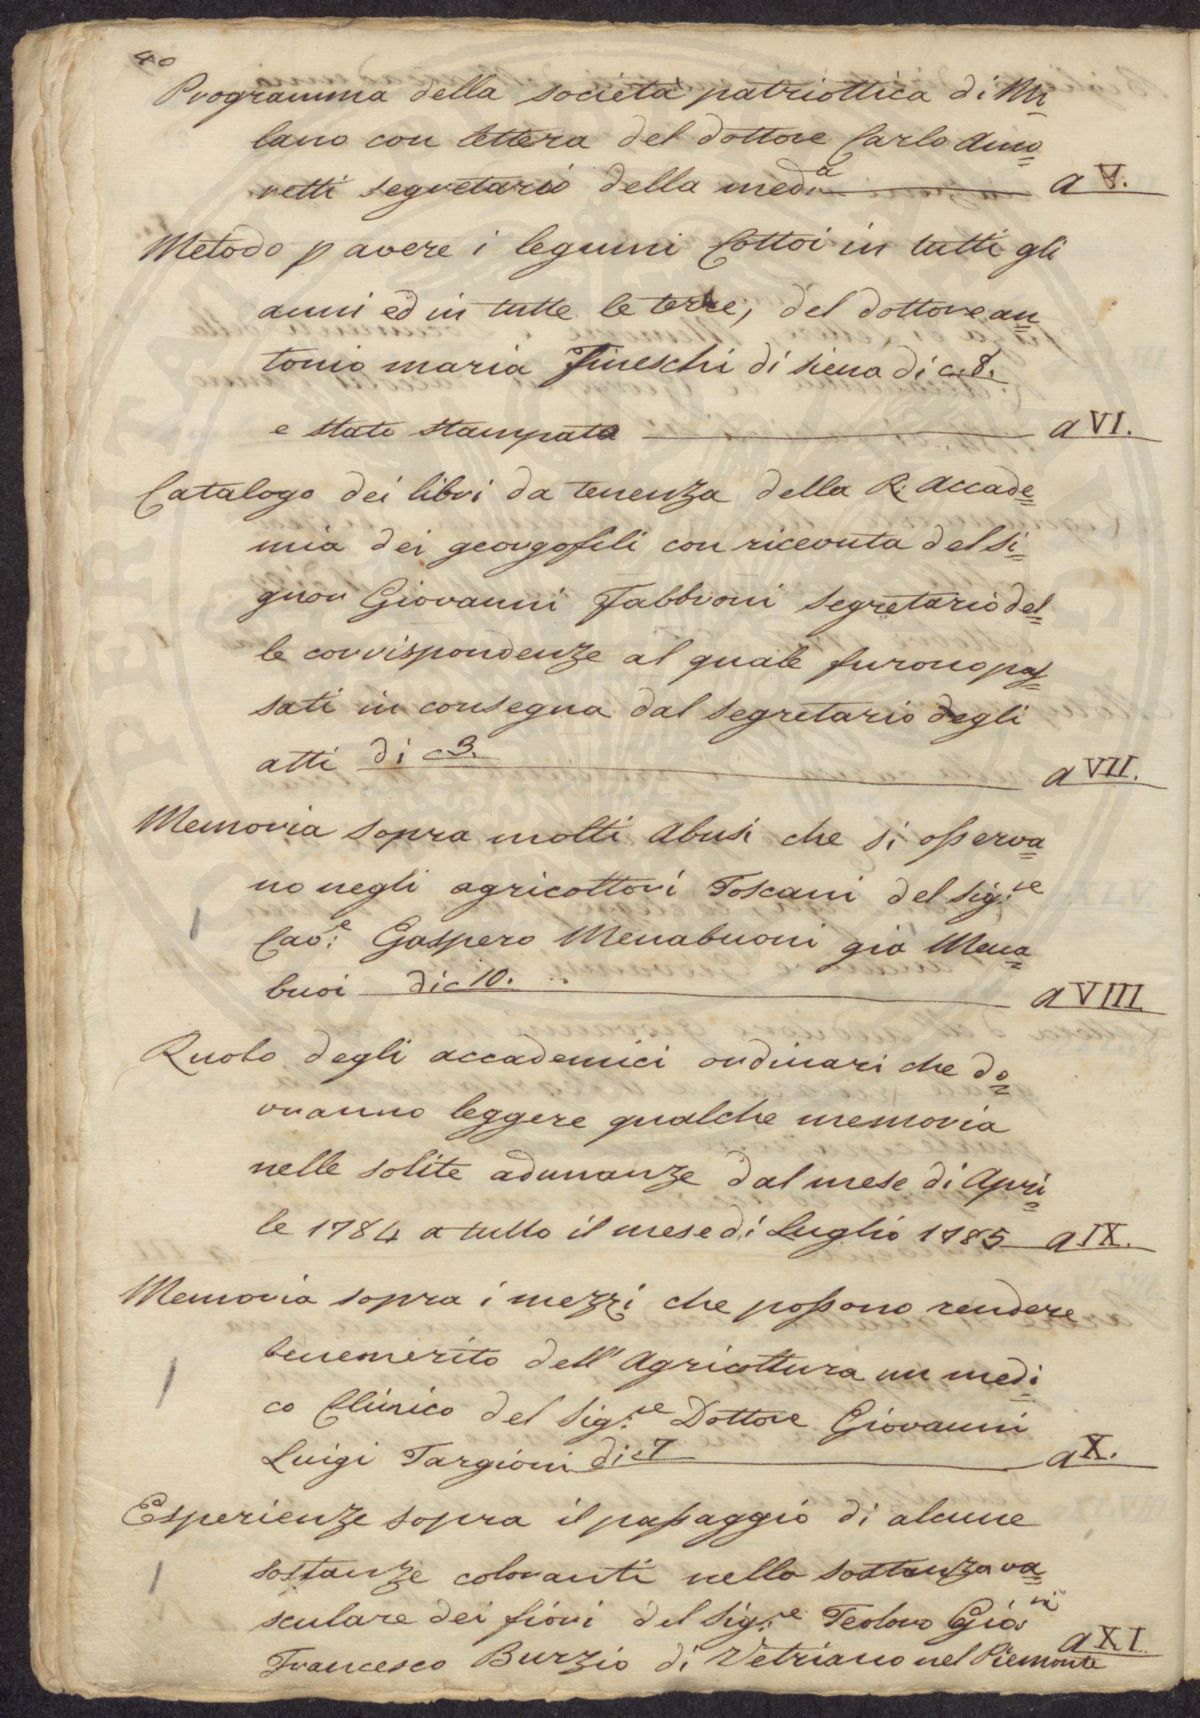 40
Programma della società patriottica di Mi
lano con lettera del dottore Carlo Amo=
retti segretario della med.a a V.
Metodo p avere i legumi Cottoi in tutti gli
anni ed in tutte le terre, del dottore an=
tonio maria Fineschi di siena di c. 8.
e stato stampato a VI.
Catalogo dei libri da tenenza della R. Accade=
mia dei georgofili con ricevuta del si=
gnor Giovanni Fabbroni segretario del=
le corrispondenze al quale furono pas=
sati in consegna dal segretario degli
atti di c 3. a VII.
Memoria sopra molti Abusi che si osserva=
no negli agricoltori Toscani del sig:re
Cav:e Gaspero Menabuoni già Mena=
buoi di c 10. a VIII
Ruolo degli accademici ordinari che do=
vranno leggere qualche memoria
nelle solite adunanze dal mese di Apri=
le 1784 a tutto il mese di Luglio 1785 a IX.
Memoria sopra i mezzi che possono rendere
benemerito dell'Agricoltura un medi=
co Clinico del Sig:re Dottore Giovanni
Luigi Targioni di c 7 a X.
Esperienze sopra il passaggio di alcune
sostanze coloranti nella sostanza va=
sculare dei fiori del Sig:re Teoloro Gio:ni
Francesco Burzio di Vetriano nel Piemonte a XI.